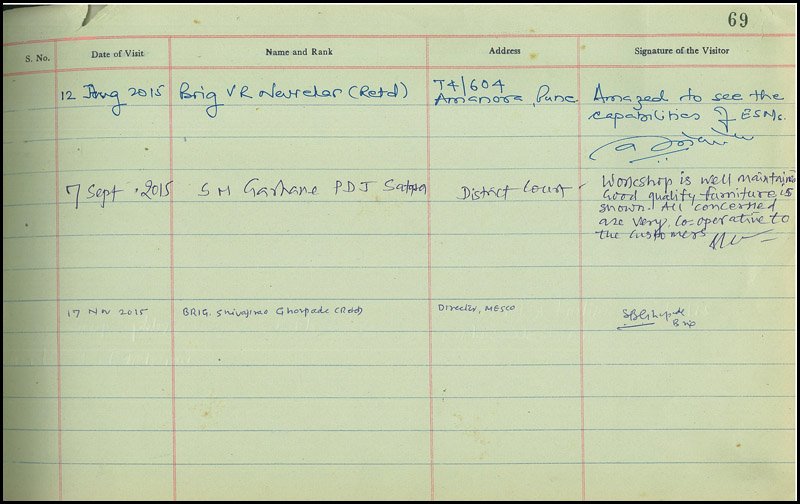 69
S. No. Date of Visit Name and Rank Address Signature of the Visitor
12 Aug 2015 Brig V R (Retd) T4/604 Amazed to see the
Amanora, Pune capabilities of ESMs.
7 Sept. 2015 S M Gavhane PDJ Satara District Court Workshop is well maintained
Good quality furniture is
shown. All concerned
are very co-operative to
the customers
17 Nov 2015 BRIG. Shivajirao Ghorpade (Retd) Director, MESCO
Brig